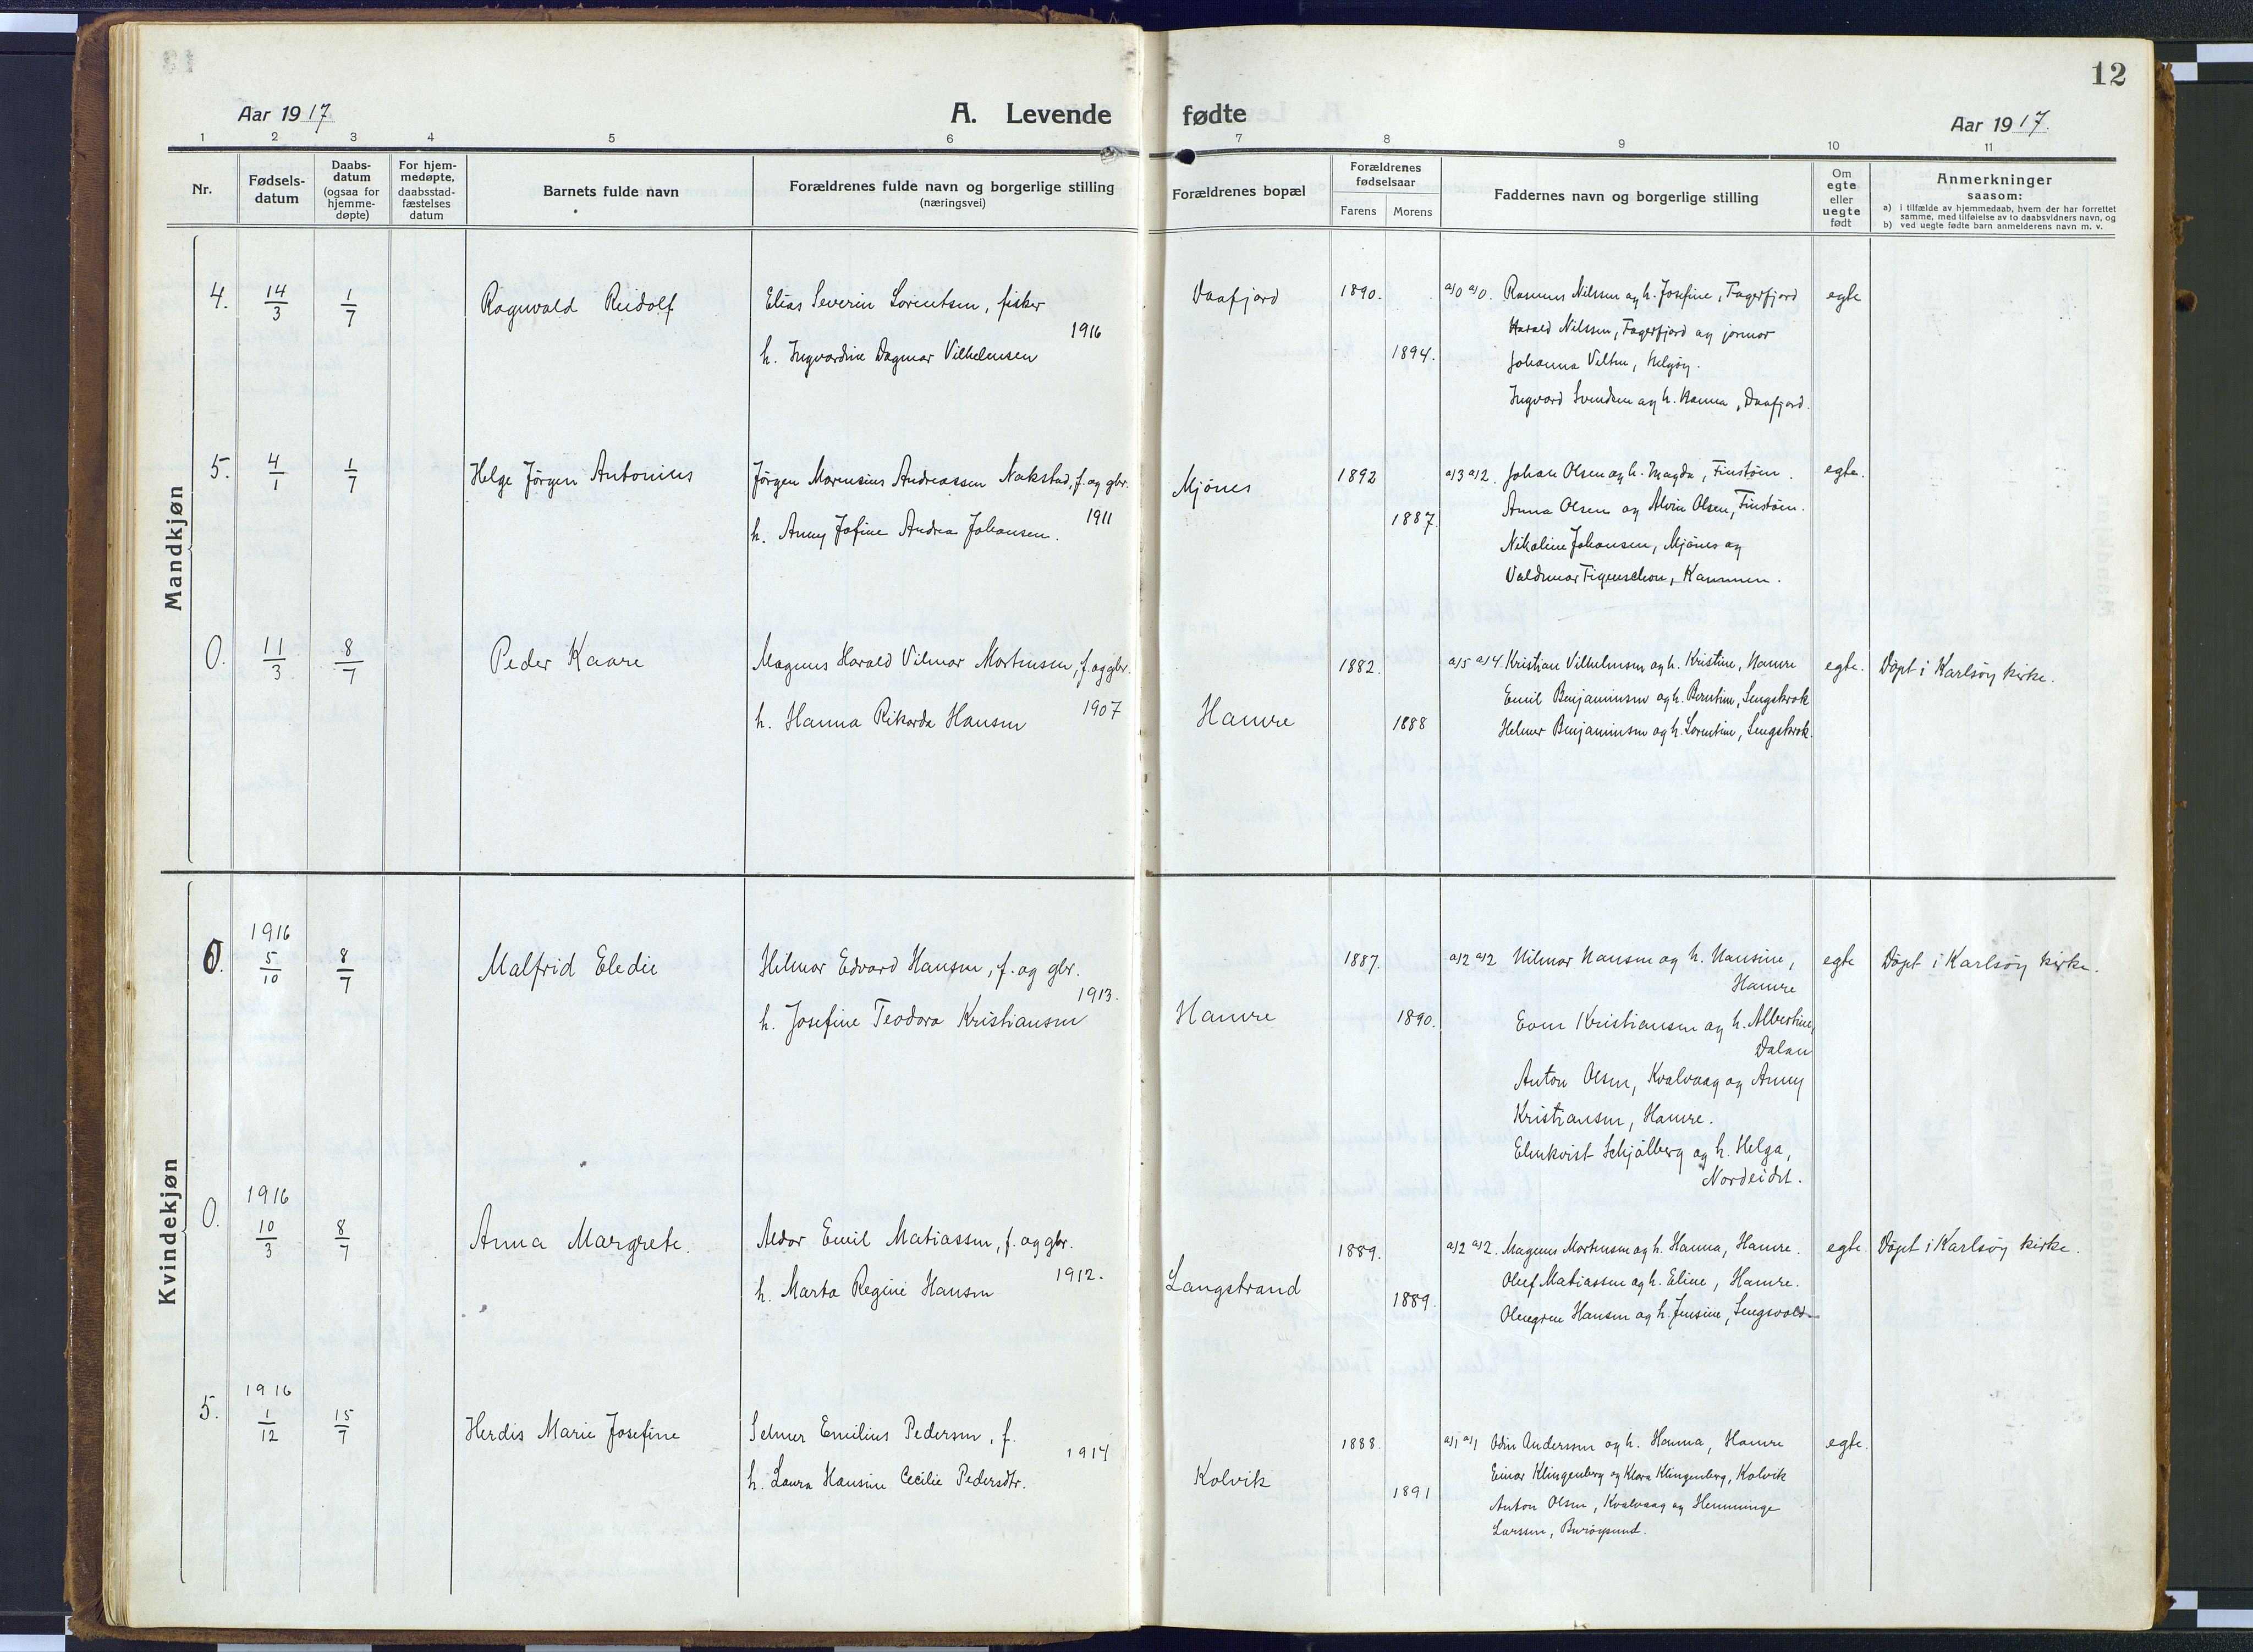 12
Aar 1917
A. Levende fødte
Aar 1917.
1 2 3 4 5 6 7 8 9 10 11
Nr.
Fødsels-
datum
Daabs-
datum
(ogsaa for
hjemme-
døpte)
For hjem-
medøpte,
daabsstad-
fæstelses
datum
Barnets fulde navn
Forældrenes fulde navn og borgerlige stilling
(næringsvei)
Forældrenes bopæl
Forældrenes
fødselsaar
Farens Morens
Faddernes navn og borgerlige stilling
Om
egte
eller
uegte
født
Anmerkninger
saasom:
a) i tilfælde av hjemmedaab, hvem der har forrettet
samme, med tilføielse av to daabsvidners navn, og
b) ved uegte fødte barn anmelderens navn m. v.
Mandkjøn
4. 14/3 1/7 Ragnvald Reidolf Elias Severin Lorentsen, fisker Daafjord 1890. a/0 a/0. Rasmus Nilssen og h. Josefine, Fagerfjord egte
1916
Harald Nilssen, Fagerfjord og jormor
h. Ingvardine Dagmar Vilhelmsen 1894. Johanna Velten, Helgøy.
Ingvard Svendsen og h. Hanna, Daafjord.
5. 4/1 1/7 Helge Jørgen Antonius Jørgen Marensius Andreassen Nakstad, f. og gbr. Mjönes 1892 a/3 a/2. Johan Olsen og h. Magda, Finstøm. egte.
1911
h. Anny Jofine Andrea Johansen. 1887. Anna Olsen og Alvin Olsen, Finstøm.
Nikoline Johansen, Mjönes og
Valdemar Figenschou, Kammen.
0. 11/3 8/7 Peder Kaare Magnus Harald Vilmar Mortensen, f. og gbr. 1882. a/5 a/4. Kristian Vilhelmsen og h. Kristine, Hamre egte. Døpt i Karlsøy kirke.
1907
Emil Benjaminsen og h. Berntine, Lengskrok
h. Hanna Rikarda Hansen Hamre 1888 Helmer Benjaminsen og h. Lorentine, Lengskrok.
Kvindekjøn
1916
0. 5/10 8/7 Malfrid Eledie Hilmar Edvard Hansen, f. og gbr. 1887. a/2 a/2 Hilmar Hansen og h. Hansine, egte Døpt i Karlsøy kirke.
1913.
Hamre
h. Josefine Teodora Kristiansen Hamre 1890. Even Kristiansen og h. Albertine,
Dalan
Anton Olsen, Kvalvaag og Anny
Kristiansen, Hamre.
Elmkvist Schjølberg og h. Helga,
Nordeidet.
1916
0. 10/3 8/7 Anna Margrete. Aldor Emil Matiassen, f. og gbr. 1889. a/2 a/2. Magnus Mortensen og h. Hanna, Hamre. egte. Døpt i Karlsøy kirke.
1912.
h. Marta Regine Hansen Langstrand 1889. Oluf Matiassen og h. Eline, Hamre.
Hansen og h. Jensine, Lengsvold
1916
5. 1/12 15/7 Herdis Marie Josefine Selmer Emilius Pedersen, f. 1888. a/1 a/1 Odin Anderssen og h. Hanna, Hamre egte.
1914
Einar Klingenberg og Klara Klingenberg, Kolvik
h. Laura Hansine Cecilie Pedersdtr. Kolvik 1891 Anton Olsen, Kvalvaag og Hemminge
Larssen, Burøysund.